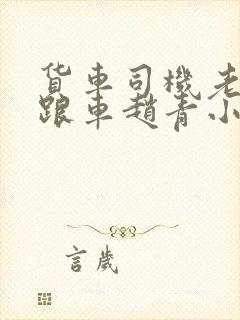 货車司機老
跟車趙青小
言歲